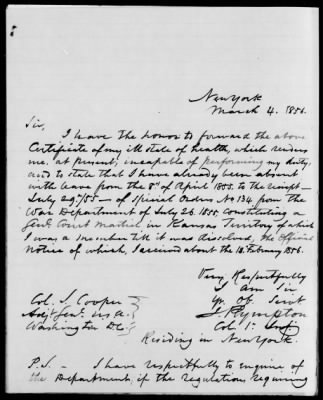 New York
March 4. 1856.
Sir,
I have the honor to forward the above
Certificate of my ill state of health, which renders
me at present, incapable of performing my duty,
and to state that I have already been absent
with leave from the 8th of April 1855. to the receipt -
July 29/55 - of Special Orders No 134 from the
War Department of July 26. 1855, constituting a
Genl Court Martial in Kansas Territory of which
I was a member till it was dissolved, the official
Notice of which, I received about the 18. February 1856.
Very Respectfully
I am Sir
Yr. Ob. Servt
J. Plympton,
Col. 1st Infy
Col. S. Cooper
Adjt Genl. U.S.A.
Washington D.C.
Residing in New York.
P.S. - I have respectfully to enquire of
the Department, if the regulations requiring